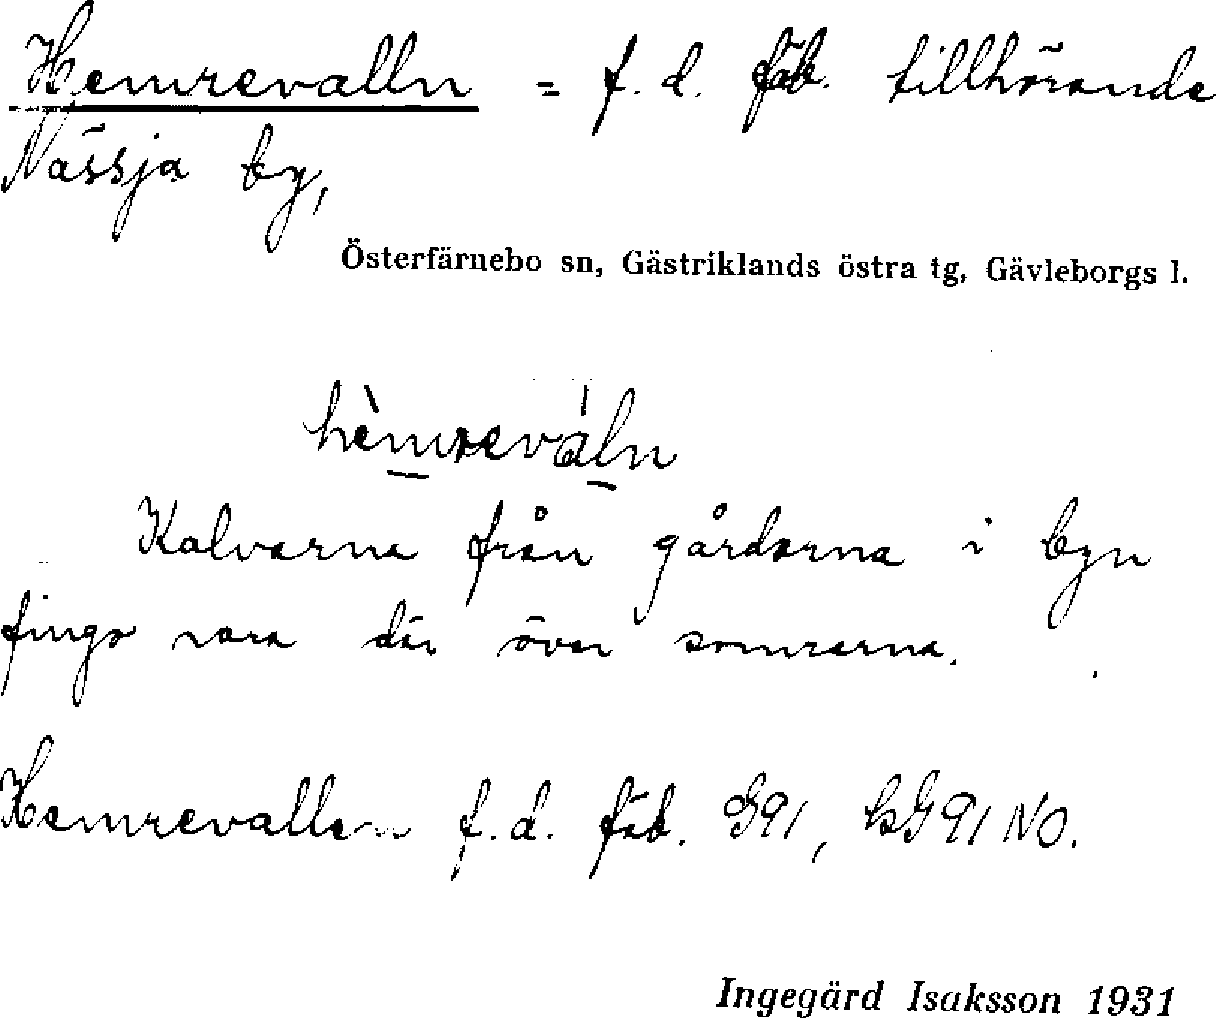 Hemrevalln = f.d. fäb. tillhörande
Nässja by,
Österfärnebo sn, Gästriklands östra tg, Gävleborgs l.
hèmreváln
Kalvarna från gårdarna i byn
fingo vara där över somrarna.
Hemrevallen f.d. fäb. G91, bG91NO.
Ingegärd Isaksson 1931